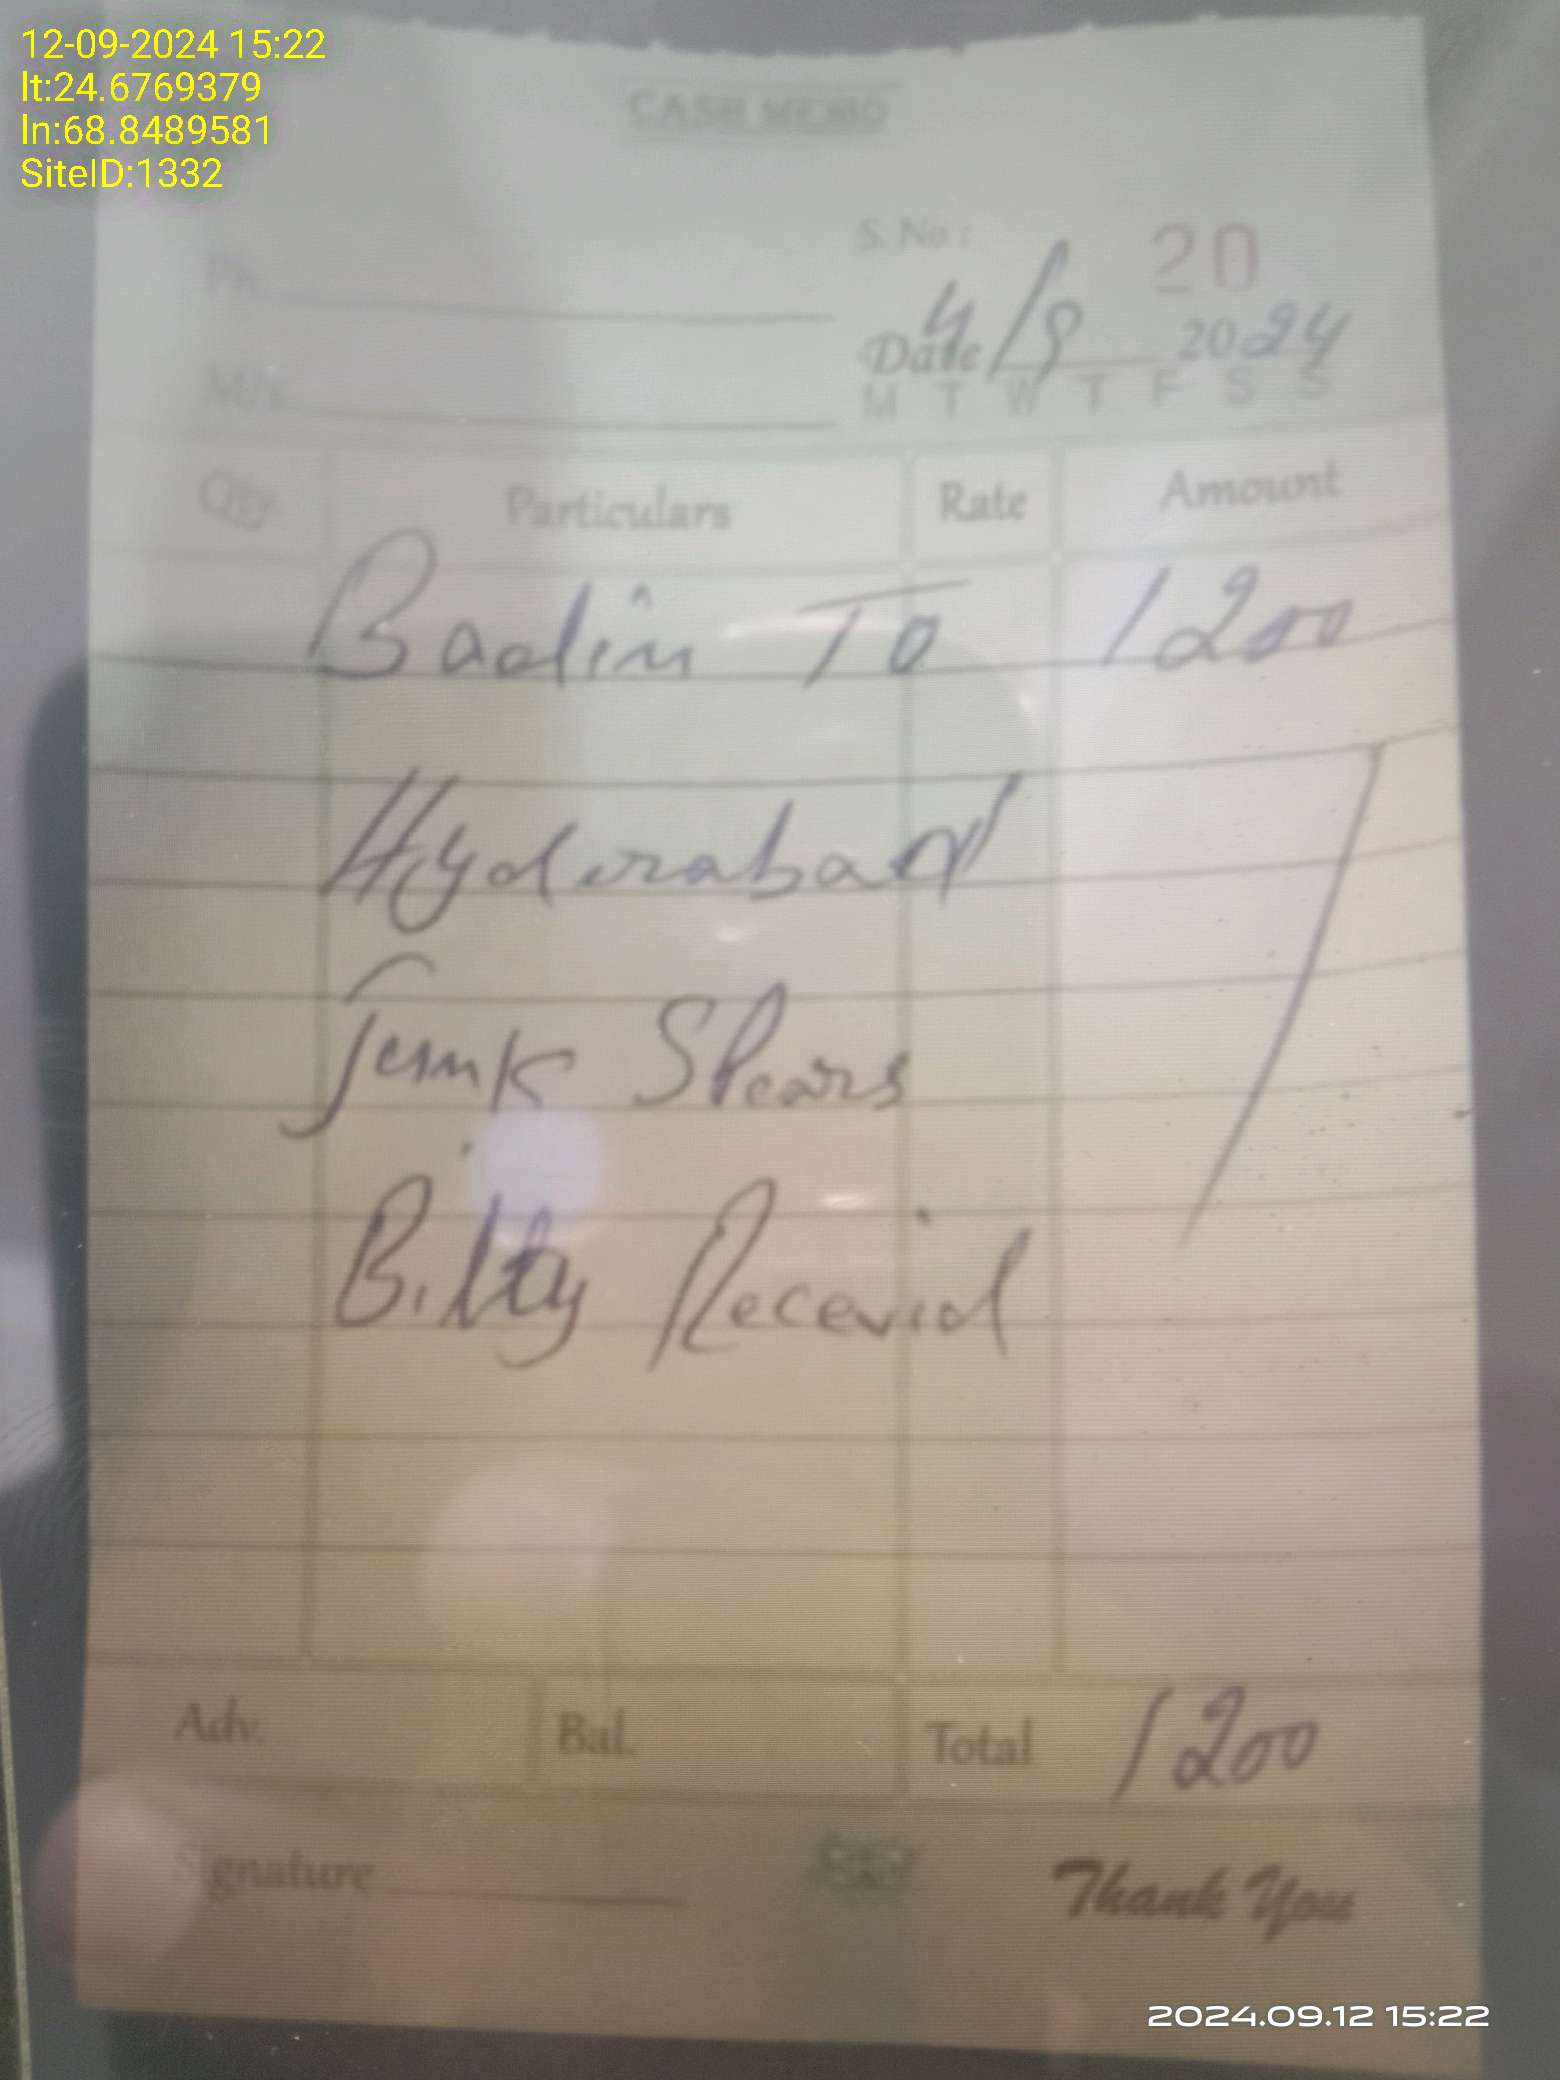 12-09-2024 15:22
lt:24.6769379
ln:68.8489581
SiteID:1332
CASH MEMO
S. No : 20
Ph.
Date 4/9 2024
M/s.
M T W T F S S
Qty Particulars Rate Amount
Badin To 1200
Hyderabad
Junk Spears
Bilty Recevid
Adv. Bal. Total 1200
Signature Thank You
2024.09.12 15:22